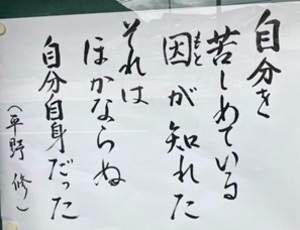 自分を
苦しめている
因が知れた
もと
それは
ほかならぬ
自分自身だった
（平野 修）